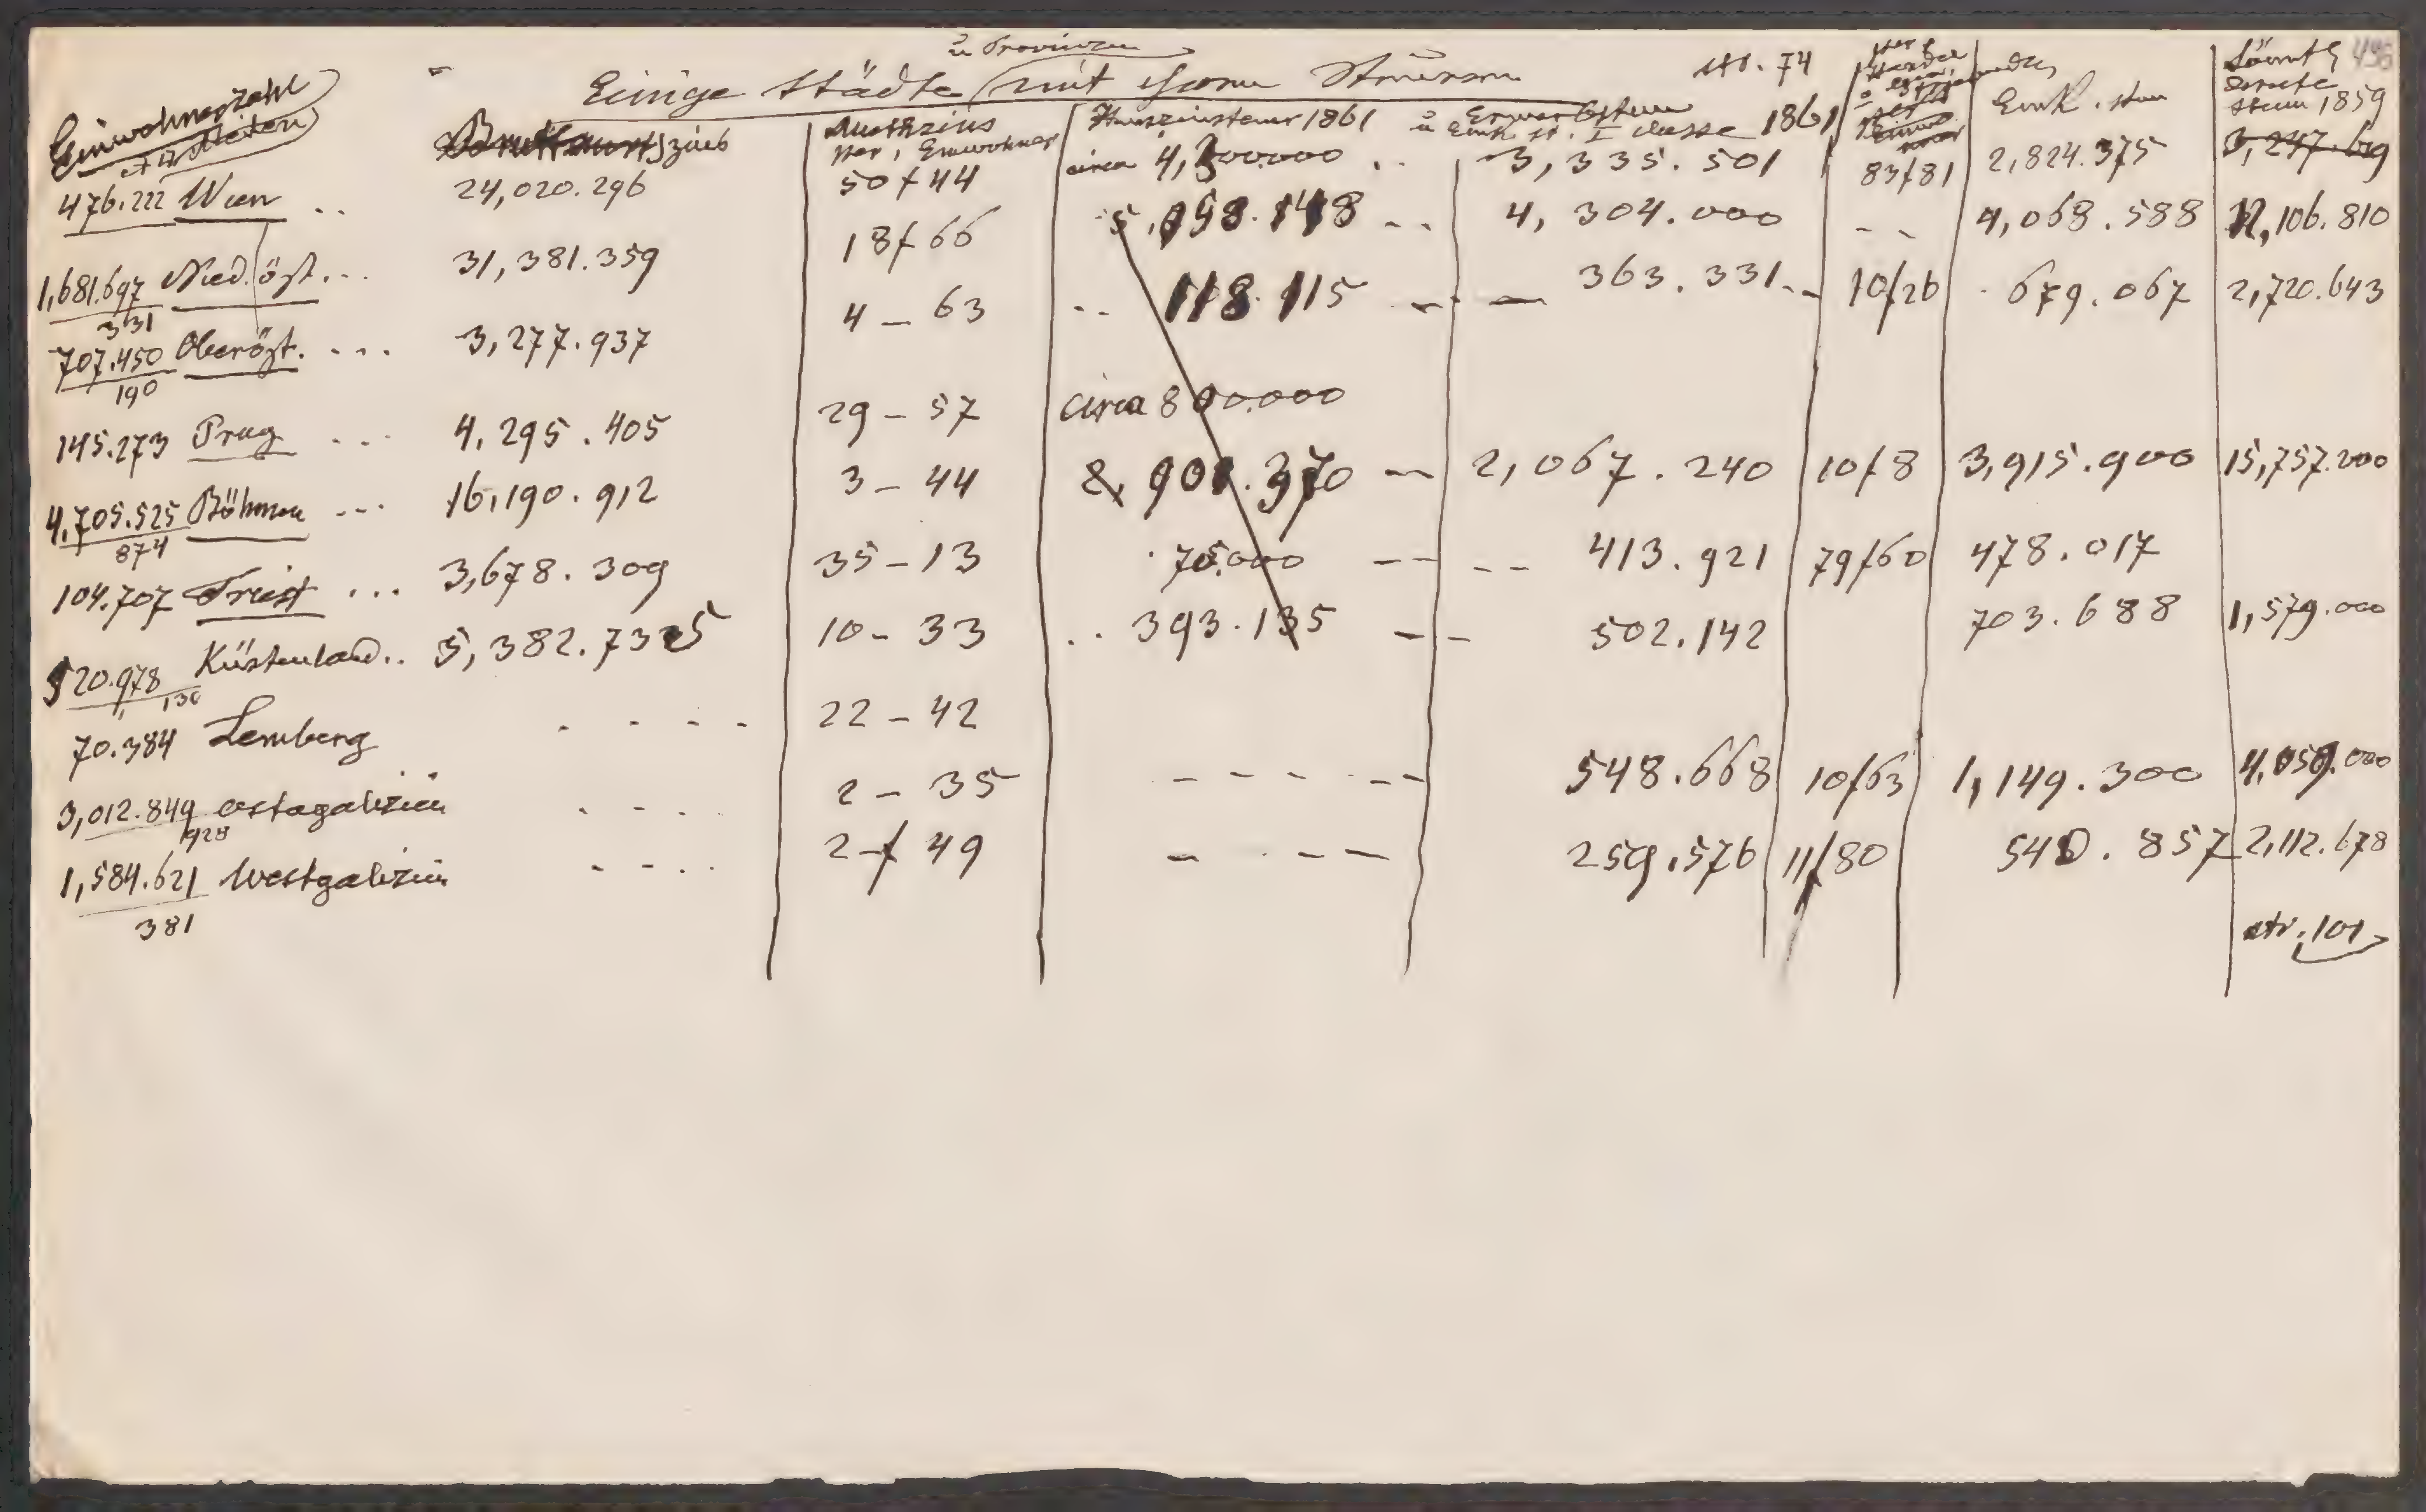 u Provinzen
Einige Städte mit ihren Steuern str. 74
495
Einwohnerzahl
Miethzins per 1 Einwohner
Hauszinssteuer 1861
Erwerbsteuer u Eink. st. I Classe 1861
Eink. steu
Sämtl directe Steuer 1859
476.222 Wien .. 24,020.296 50f44 circa 4,300000 .. 3,335.501 83f81 2,824.375 3,247.619
1,681.697 Nied.öst... 31,381.359 18f66 5,098.148 -- 4,304.000 -- 4,068.588 12,106.810
331
707.450 Oberöst. ... 3,277.937 4-63 .. 118.115 -- — 363.331.. 10f26 679.067 2,720.643
190
145.273 Prag ... 4,295.405 29-57 circa 800.000
4,705.525 Böhmen ... 16,190.912 3-44 2,901.370 — 2,067.240 10f8 3,915.900 15,757.200
874
104.707 Triest ... 3,678.309 35-13 70.000 -- -- 413.921 79f60 478.017
520.978 Küstenland.. 5,382.735 10-33 .. 393.135 -- 502.142 703.688 1,579.000
130
70.384 Lemberg .... 22-42
3,012.849 ostgalizien .... 2-35 ----- 548.668 10f63 1,149.300 4,059.000
928
1,584.621 Westgalizien .... 2-f49 ---- 259.576 11f80 540.857 2,112.678
381
str. 101